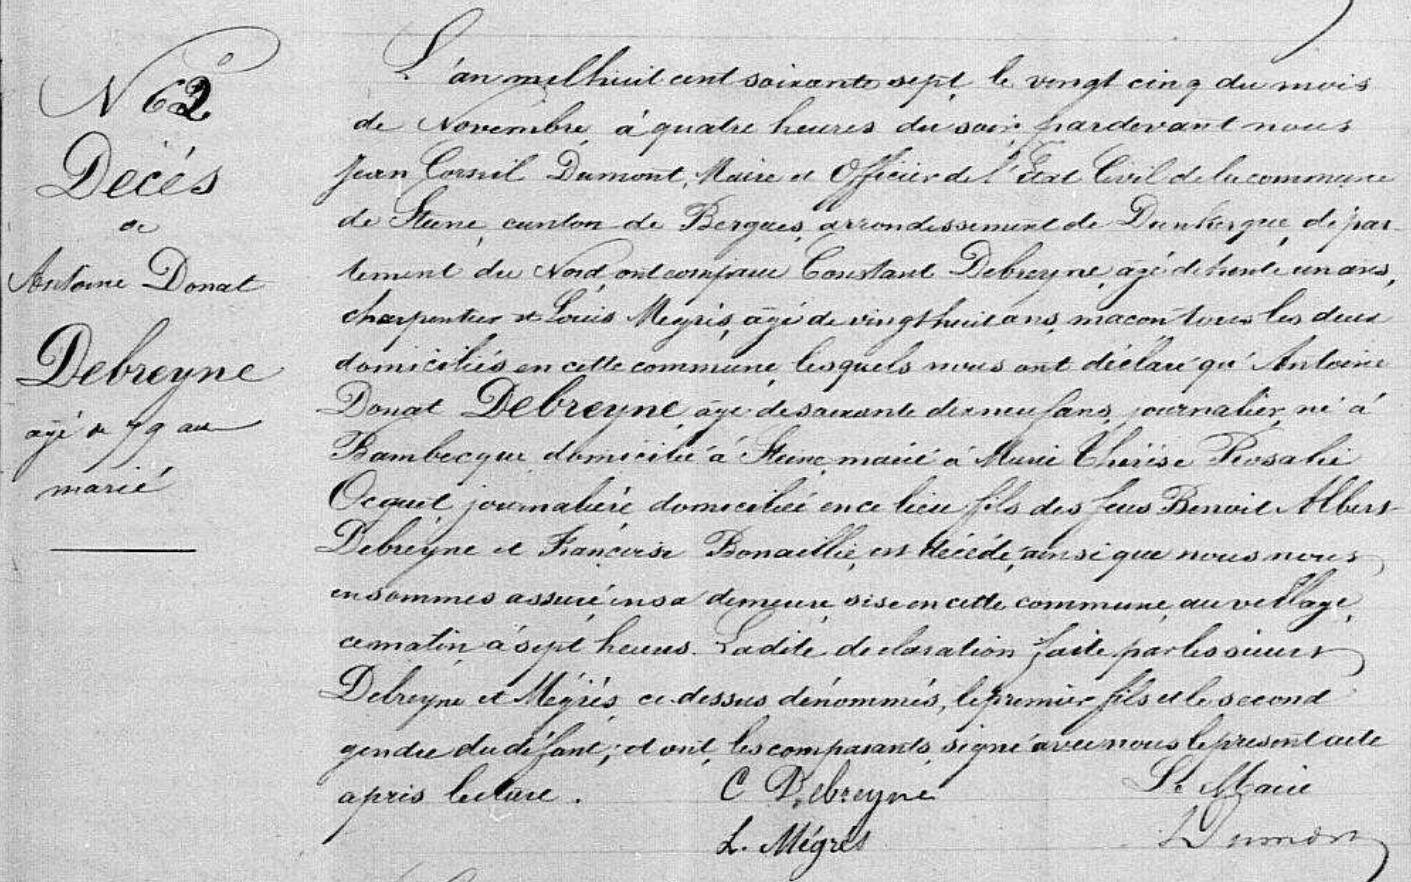 N° 62
Décès
de
Antoine Donat
Debreyne
âgé de 79 ans
marié
L'an mil huit cent soixante sept, le vingt cinq du mois
de Novembre, à quatre heures du soir, pardevant nous
Jean Corneil Dumont, Maire et Officier de l'Etat Civil de la commune
de Steene, canton de Bergues, arrondissement de Dunkerque, dépar-
tement du Nord, ont comparu Constant Debreyne, âgé de trente un ans,
charpentier et Louis Mégrés, âgé de vingt huit ans, macon tous les deux
domiciliés en cette commune, lesquels nous ont déclaré qu'Antoine
Donat Debreyne, âgé de soixante dix neuf ans, journalier, né à
Bambecque domicilié à Steene, marié à Marie Thérèse Rosalie
Ocquet, journalière domiciliée en ce lieu fils des feus Benoit Albert
Debreyne et Françoise Bonaillie, est décédé, ainsi que nous nous
en sommes assuré en sa demeure, sise en cette commune, au village,
ce matin à sept heures. La dite déclaration faite par les sieurs
Debreyne et Mégrés, ci-dessus dénommés, le premier fils et le second
gendre du défunt; et ont, les comparants, signé avec nous le présent acte
après lecture.
C Debreyne
Le Maire
L. Mégrés
Dumont